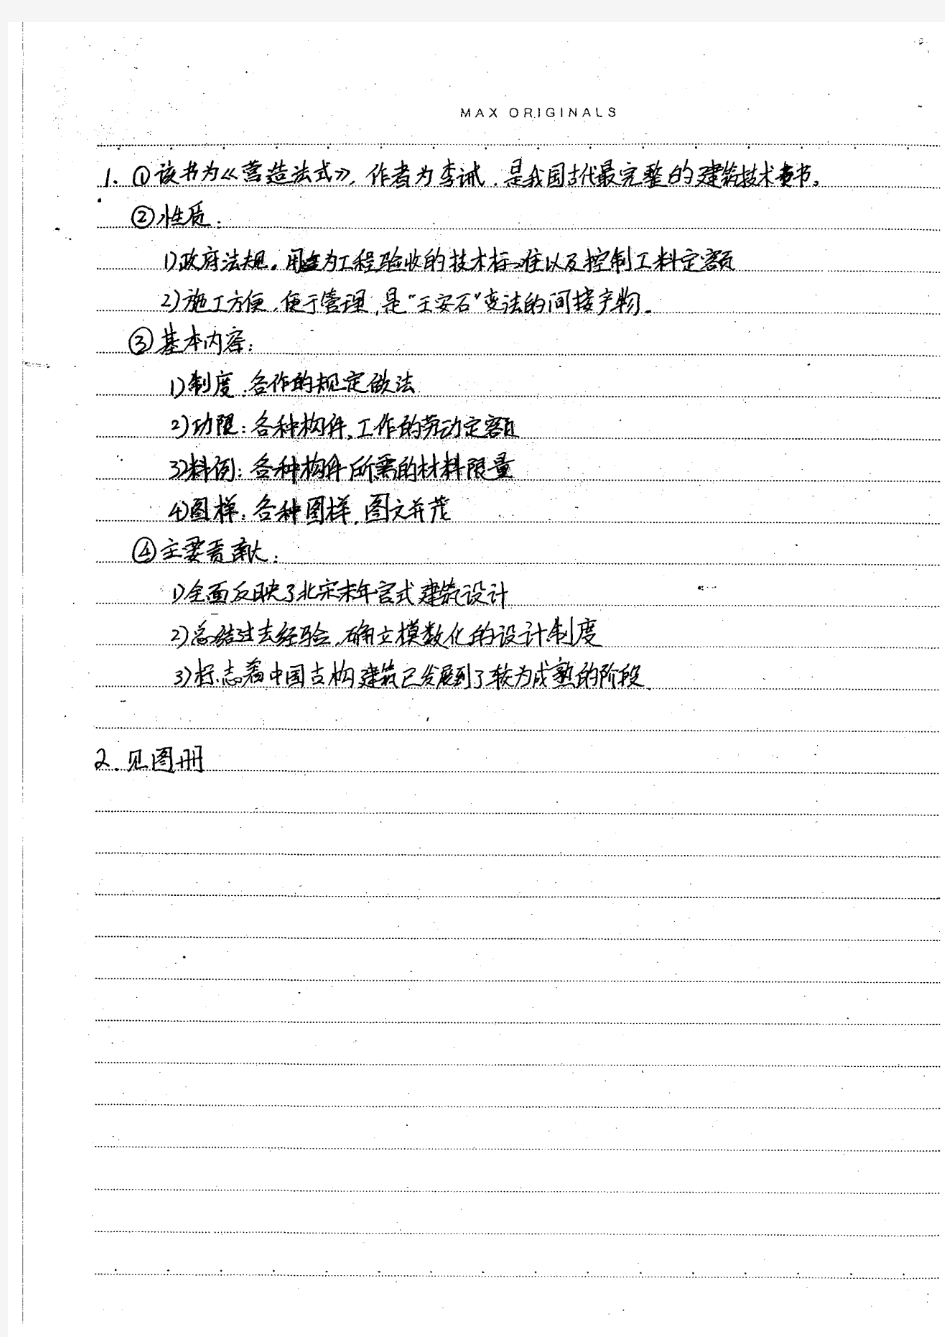 MAX ORIGINALS
1. ①该书为《营造法式》, 作者为李诫. 是我国古代最完整的建筑技术书。
②性质:
1)政府法规。用为工程验收的技术标准以及控制工料定额
2)施工方便, 便于管理, 是"王安石"变法的间接产物。
③基本内容:
1)制度. 各作的规定做法
2)功限: 各种构件, 工作的劳动定额
3)料例: 各种构件所需的材料限量
4)图样: 各种图样, 图文并茂
④主要贡献:
1)全面反映了北宋末年官式建筑设计
2)总结过去经验, 确立模数化的设计制度
3)标志着中国古构建筑已发展到了较为成熟的阶段
2. 见图册